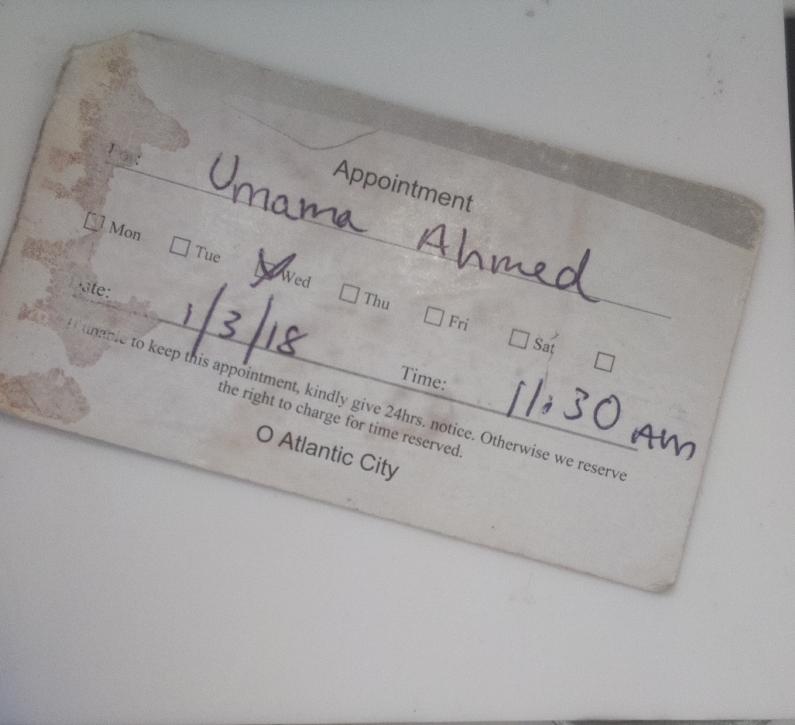 Appointment
For: Umama Ahmed
Mon Tue Wed Thu Fri Sat
Date: 1/3/18 Time: 11:30 AM
If unable to keep this appointment, kindly give 24hrs. notice. Otherwise we reserve
the right to charge for time reserved.
O Atlantic City